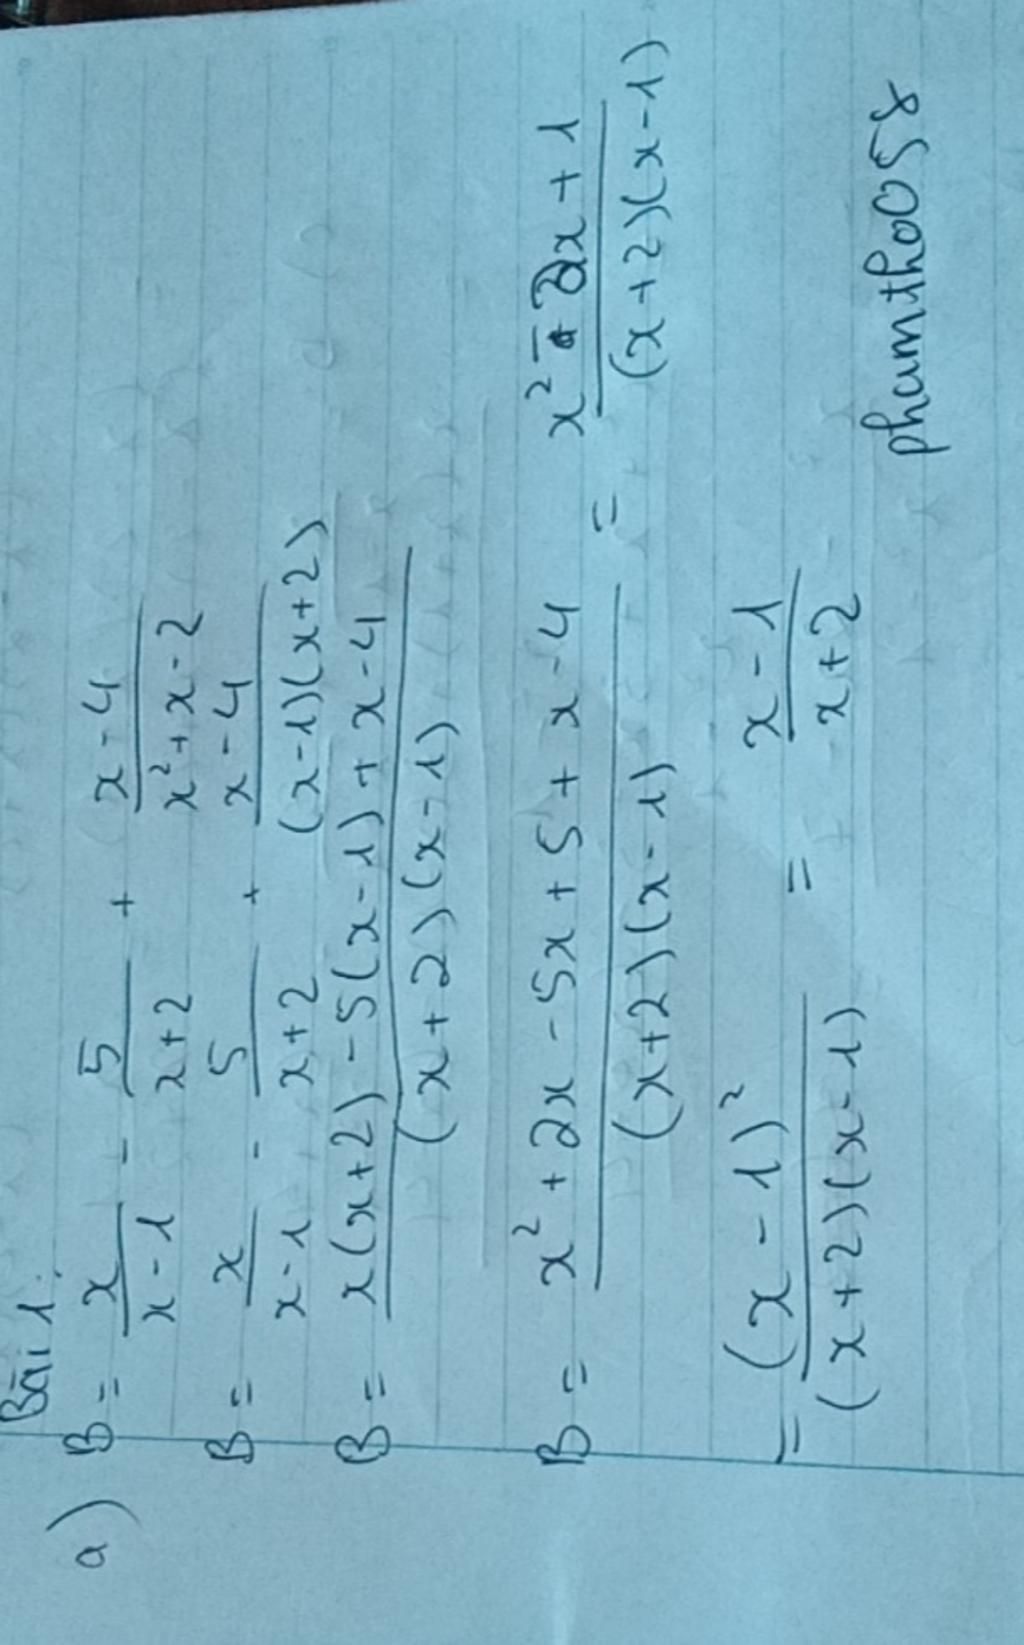 Bài 1:
a) B = x/(x-1) - 5/(x+2) + (x-4)/(x²+x-2)
B = x/(x-1) - 5/(x+2) + (x-4)/((x-1)(x+2))
B = (x(x+2) - 5(x-1) + x-4)/((x+2)(x-1))
B = (x² + 2x - 5x + 5 + x - 4)/((x+2)(x-1)) = (x² - 2x + 1)/((x+2)(x-1))
= (x-1)²/((x+2)(x-1)) = (x-1)/(x+2)
phamtho058